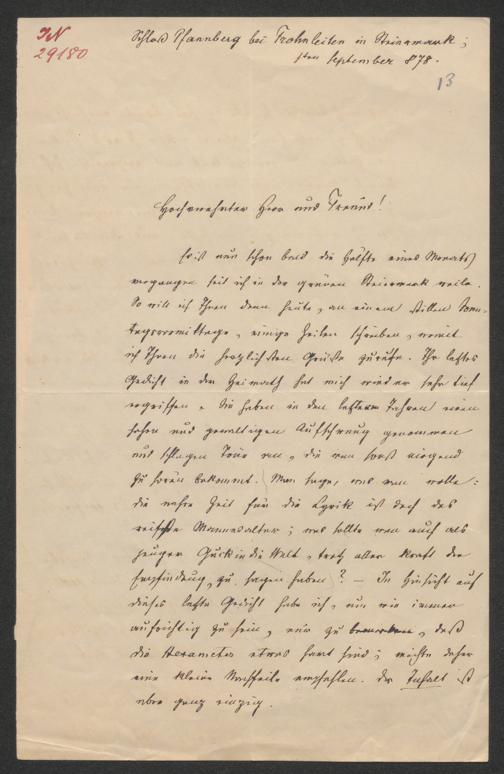 IN
29180
Schloß Pfannberg bei Frohnleiten in Steiermark;
1ten September 878.
13
Hochverehrter Herr und Freund!
Es ist nun schon bald die Hälfte eines Monats
vergangen seit ich in der grünen Steiermark weile.
So will ich Ihnen denn heute, an einem stillen Sonn-
tagsvormittage, einige Zeilen schreiben, womit
ich Ihnen die herzlichsten Grüße zurufe. Ihr letztes
Gedicht in der Heimath hat mich wieder sehr tief
ergriffen. Sie haben in den letzten Jahren einen
hohen und gewaltigen Aufschwung genommen
und schlagen Töne an, die man sonst nirgend
zu hören bekommt. Man sage, was man wolle:
die wahre Zeit für die Lyrik ist doch das
reifste Mannesalter; was sollte man auch als
junger Guck in die Welt, trotz aller Kraft der
Empfindung, zu sagen haben? — In Hinsicht auf
dieses letzte Gedicht habe ich, um wie immer
aufrichtig zu sein, nur zu bemerken, daß
die Hexameter etwas hart sind; möchte daher
eine kleine Nachfeile empfehlen. Der Inhalt ist
aber ganz einzig.